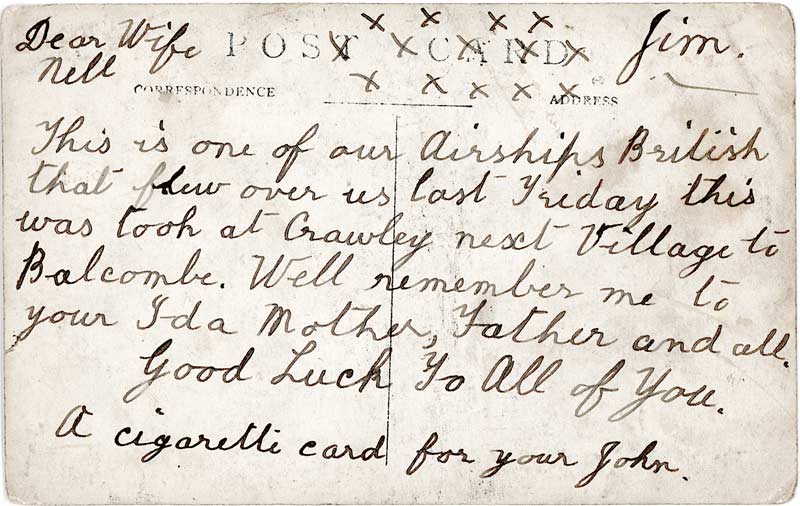 Dear Wife
Nell
x x x x
x x x x x
x x x x x
Jim.
POST CARD
CORRESPONDENCE
ADDRESS
This is one of our Airships British
that flew over us last Friday this
was took at Crawley next Village to
Balcombe. Well remember me to
your Ida Mother, Father and all.
Good Luck To All of You.
A cigarette card for your John.